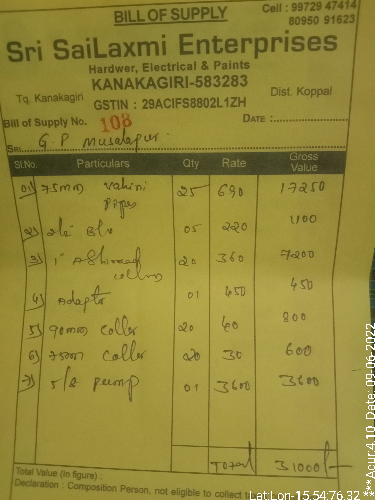 BILL OF SUPPLY
Cell : 99729 47414
80950 91623
Sri SaiLaxmi Enterprises
Hardwer, Electrical & Paints
KANAKAGIRI-583283
Tq. Kanakagiri
Dist. Koppal
GSTIN : 29ACIFS8802L1ZH
Bill of Supply No. 108
DATE :
Sri G. P Musalapur
Sl.No. Particulars Qty Rate Gross Value
01) 75mm pipes 25 690 17250
2) 05 220 1100
3) 1" 20 360 7200
4) Adapter 01 450 450
5) 90mm coller 20 40 800
6) 75mm coller 20 30 600
7) pump 01 3600 3600
Total 31000/-
Total Value (In figure) :
Declaration : Composition Person, not eligible to collect
Lat:Lon-15.5476,32***Acur:4.10 Date: 09-06-2022